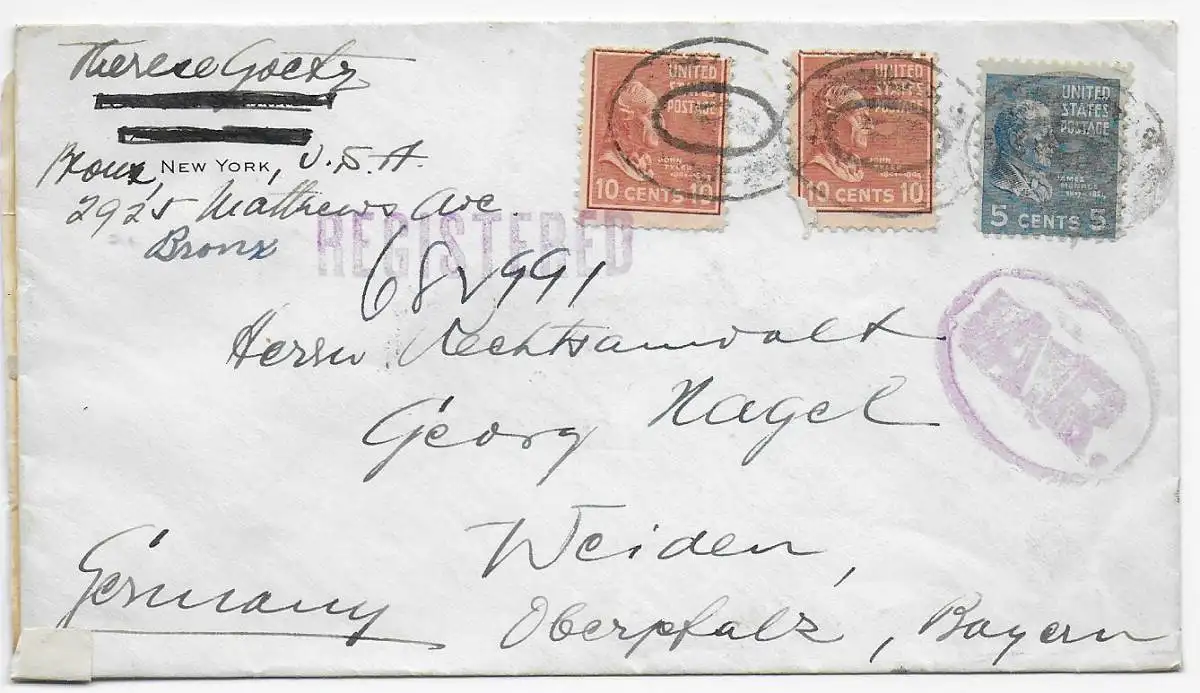 Therese Goetz
Bronx, NEW YORK, U.S.A.
2925 Matthews Ave.
Bronx
UNITED
STATES
POSTAGE
JOHN
TYLER
10 CENTS 10
UNITED
STATES
POSTAGE
JOHN
TYLER
10 CENTS 10
UNITED
STATES
POSTAGE
JAMES
MONROE
5 CENTS 5
REGISTERED
682991
A.R.
Herrn Rechtsanwalt
Georg Nagel
Weiden,
Oberpfalz, Bayern
Germany